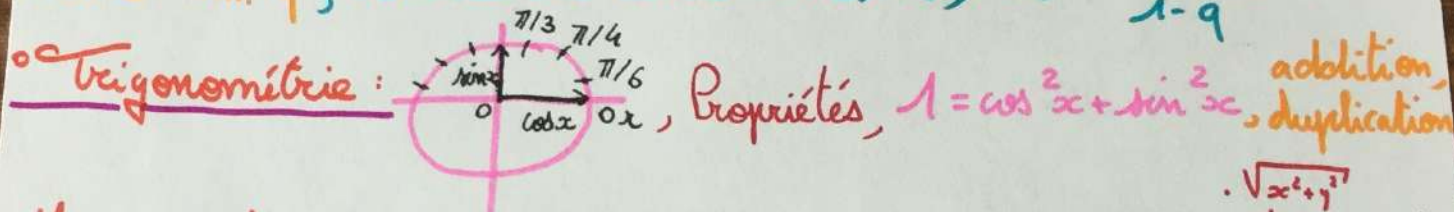 1-q
° Trigonométrie :
π/3 π/4
π/6
sin x
0 cos x 0x
, Propriétés, 1 = cos²x + sin²x, addition,
duplication
. √x²+y²